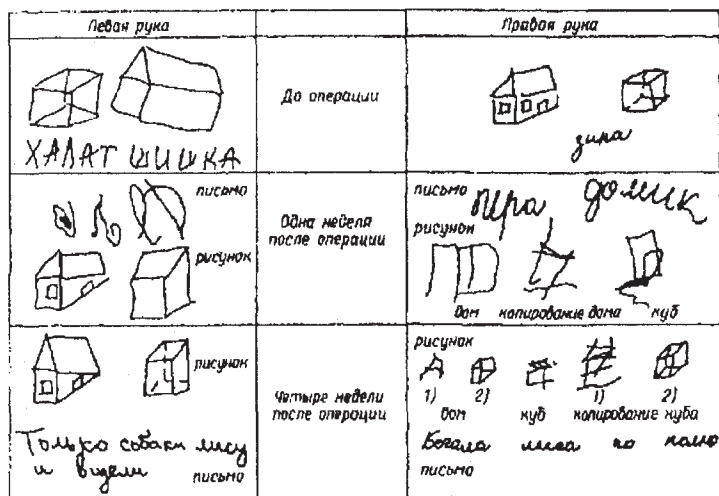 Левая рука
Правая рука
До операции
ХАЛАТ ШИШКА
зима
письмо
рисунок
Одна неделя
после операции
письмо
домик
рисунок
дом копирование дома куб
рисунок
Только собаки лису
и видели
письмо
Четыре недели
после операции
рисунок
1) 2) 1) 2)
дом куб копирование куба
Бегала лиса по
письмо